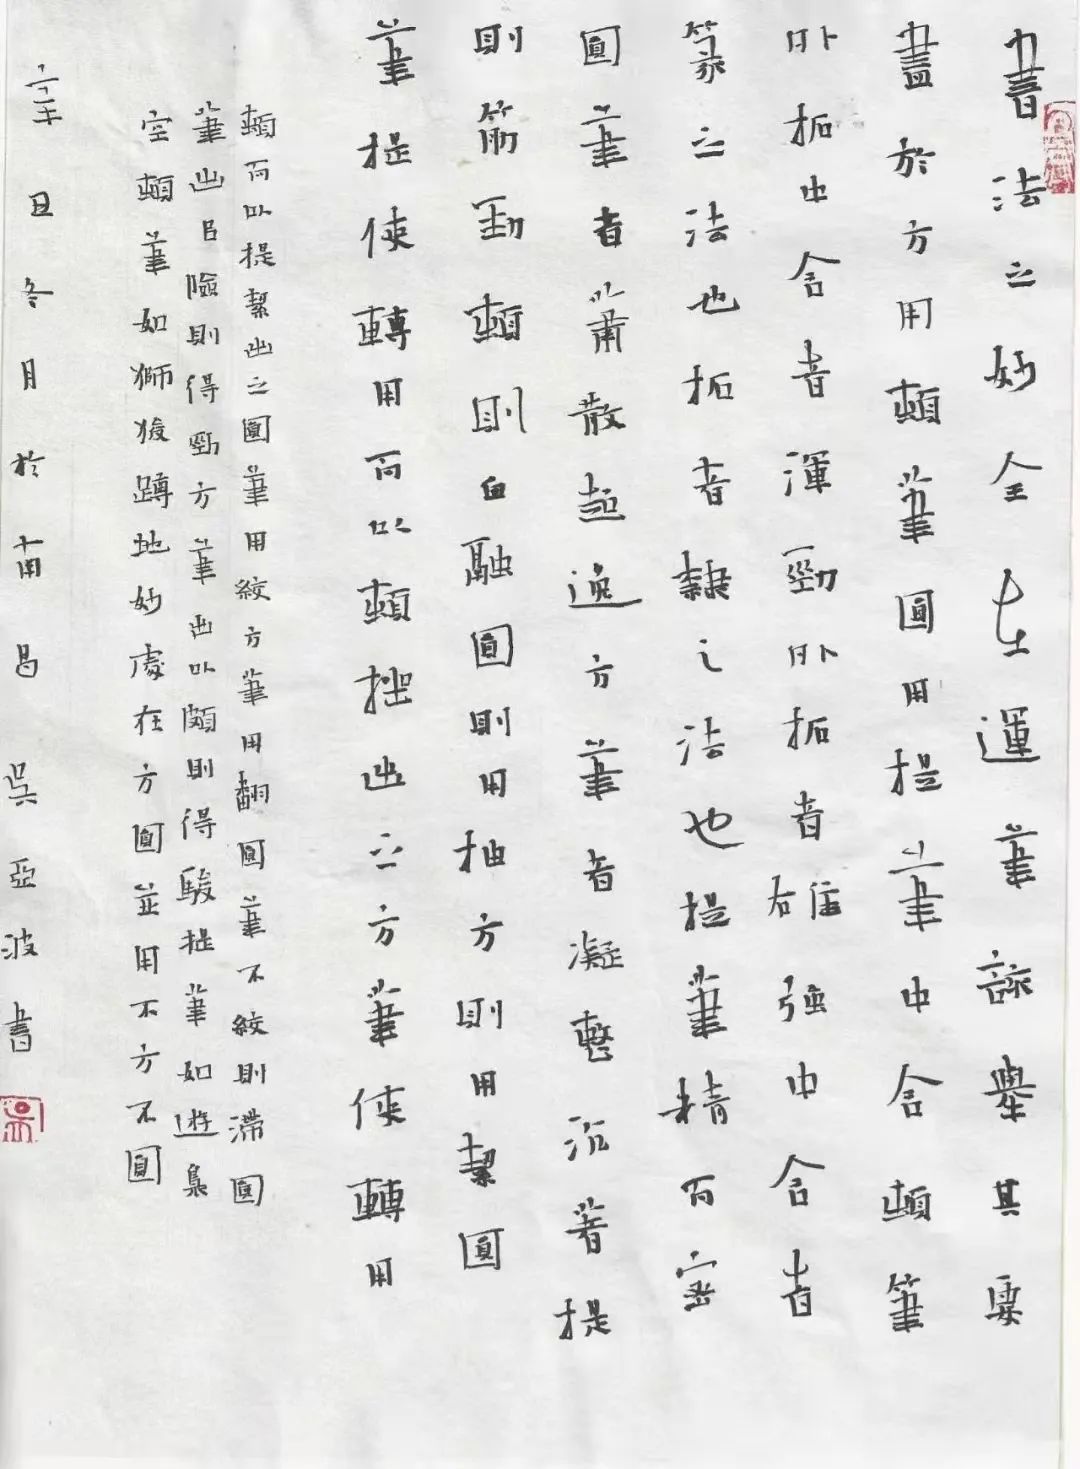 書法之妙全在運筆該舉其要
盡於方用頓筆圓用提筆中含頓筆
外拓中含者渾勁外拓者雄強中含者
篆之法也拓者隸之法也提筆精而密
圓筆者蕭散超逸方筆者凝整沉著提
則筋勁頓則血融圓則用抽方則用絜圓
筆提使轉用而以頓挫出之方筆使轉用
頓而以提絜出之圓筆用絞方筆用翻圓筆不絞則滯圓
筆出㠯險則得勁方筆出以頗則得駿提筆如遊裊
空頓筆如獅狻蹲地妙處在方圓並用不方不圓
辛丑冬月於南昌吳亞波書